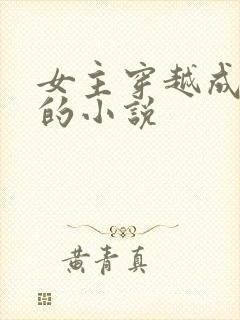 女主穿越成
的小說
黃青真